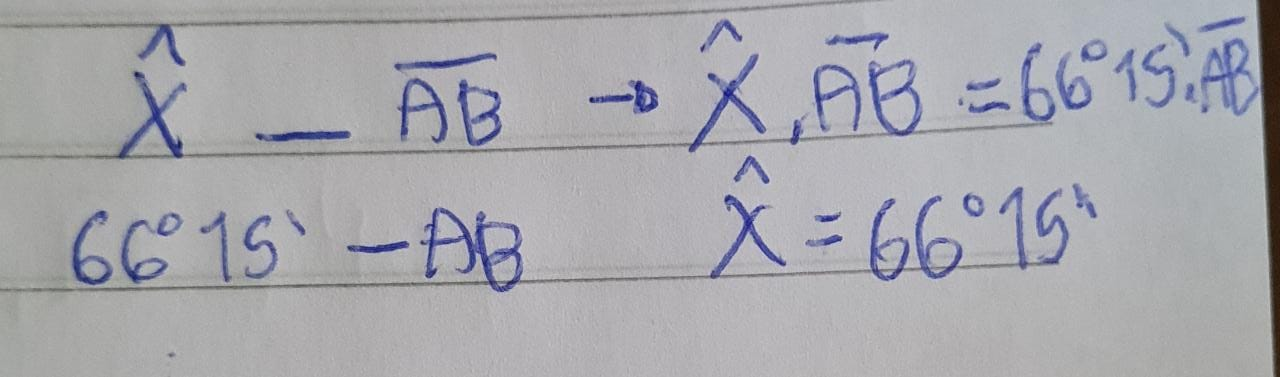 X̂ — A̅B̅ → X̂ . A̅B̅ = 66°15' . A̅B̅
66°15' — AB X̂ = 66°15'